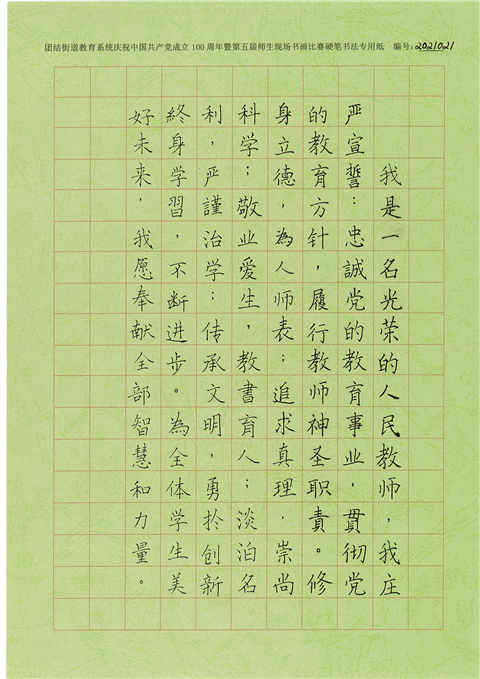 团结街道教育系统庆祝中国共产党成立 100 周年暨第五届师生现场书画比赛硬笔书法专用纸 编号:2021021
我是一名光荣的人民教师,我庄
严宣誓:忠誠党的教育事业,貫彻党
的教育方针,履行教师神圣职責。修
身立德,為人师表;追求真理,崇尚
科学;敬业爱生,教書育人;淡泊名
利,严謹治学;传承文明,勇於创新
終身学習,不断进步。為全体学生美
好未来,我愿奉献全部智慧和力量。